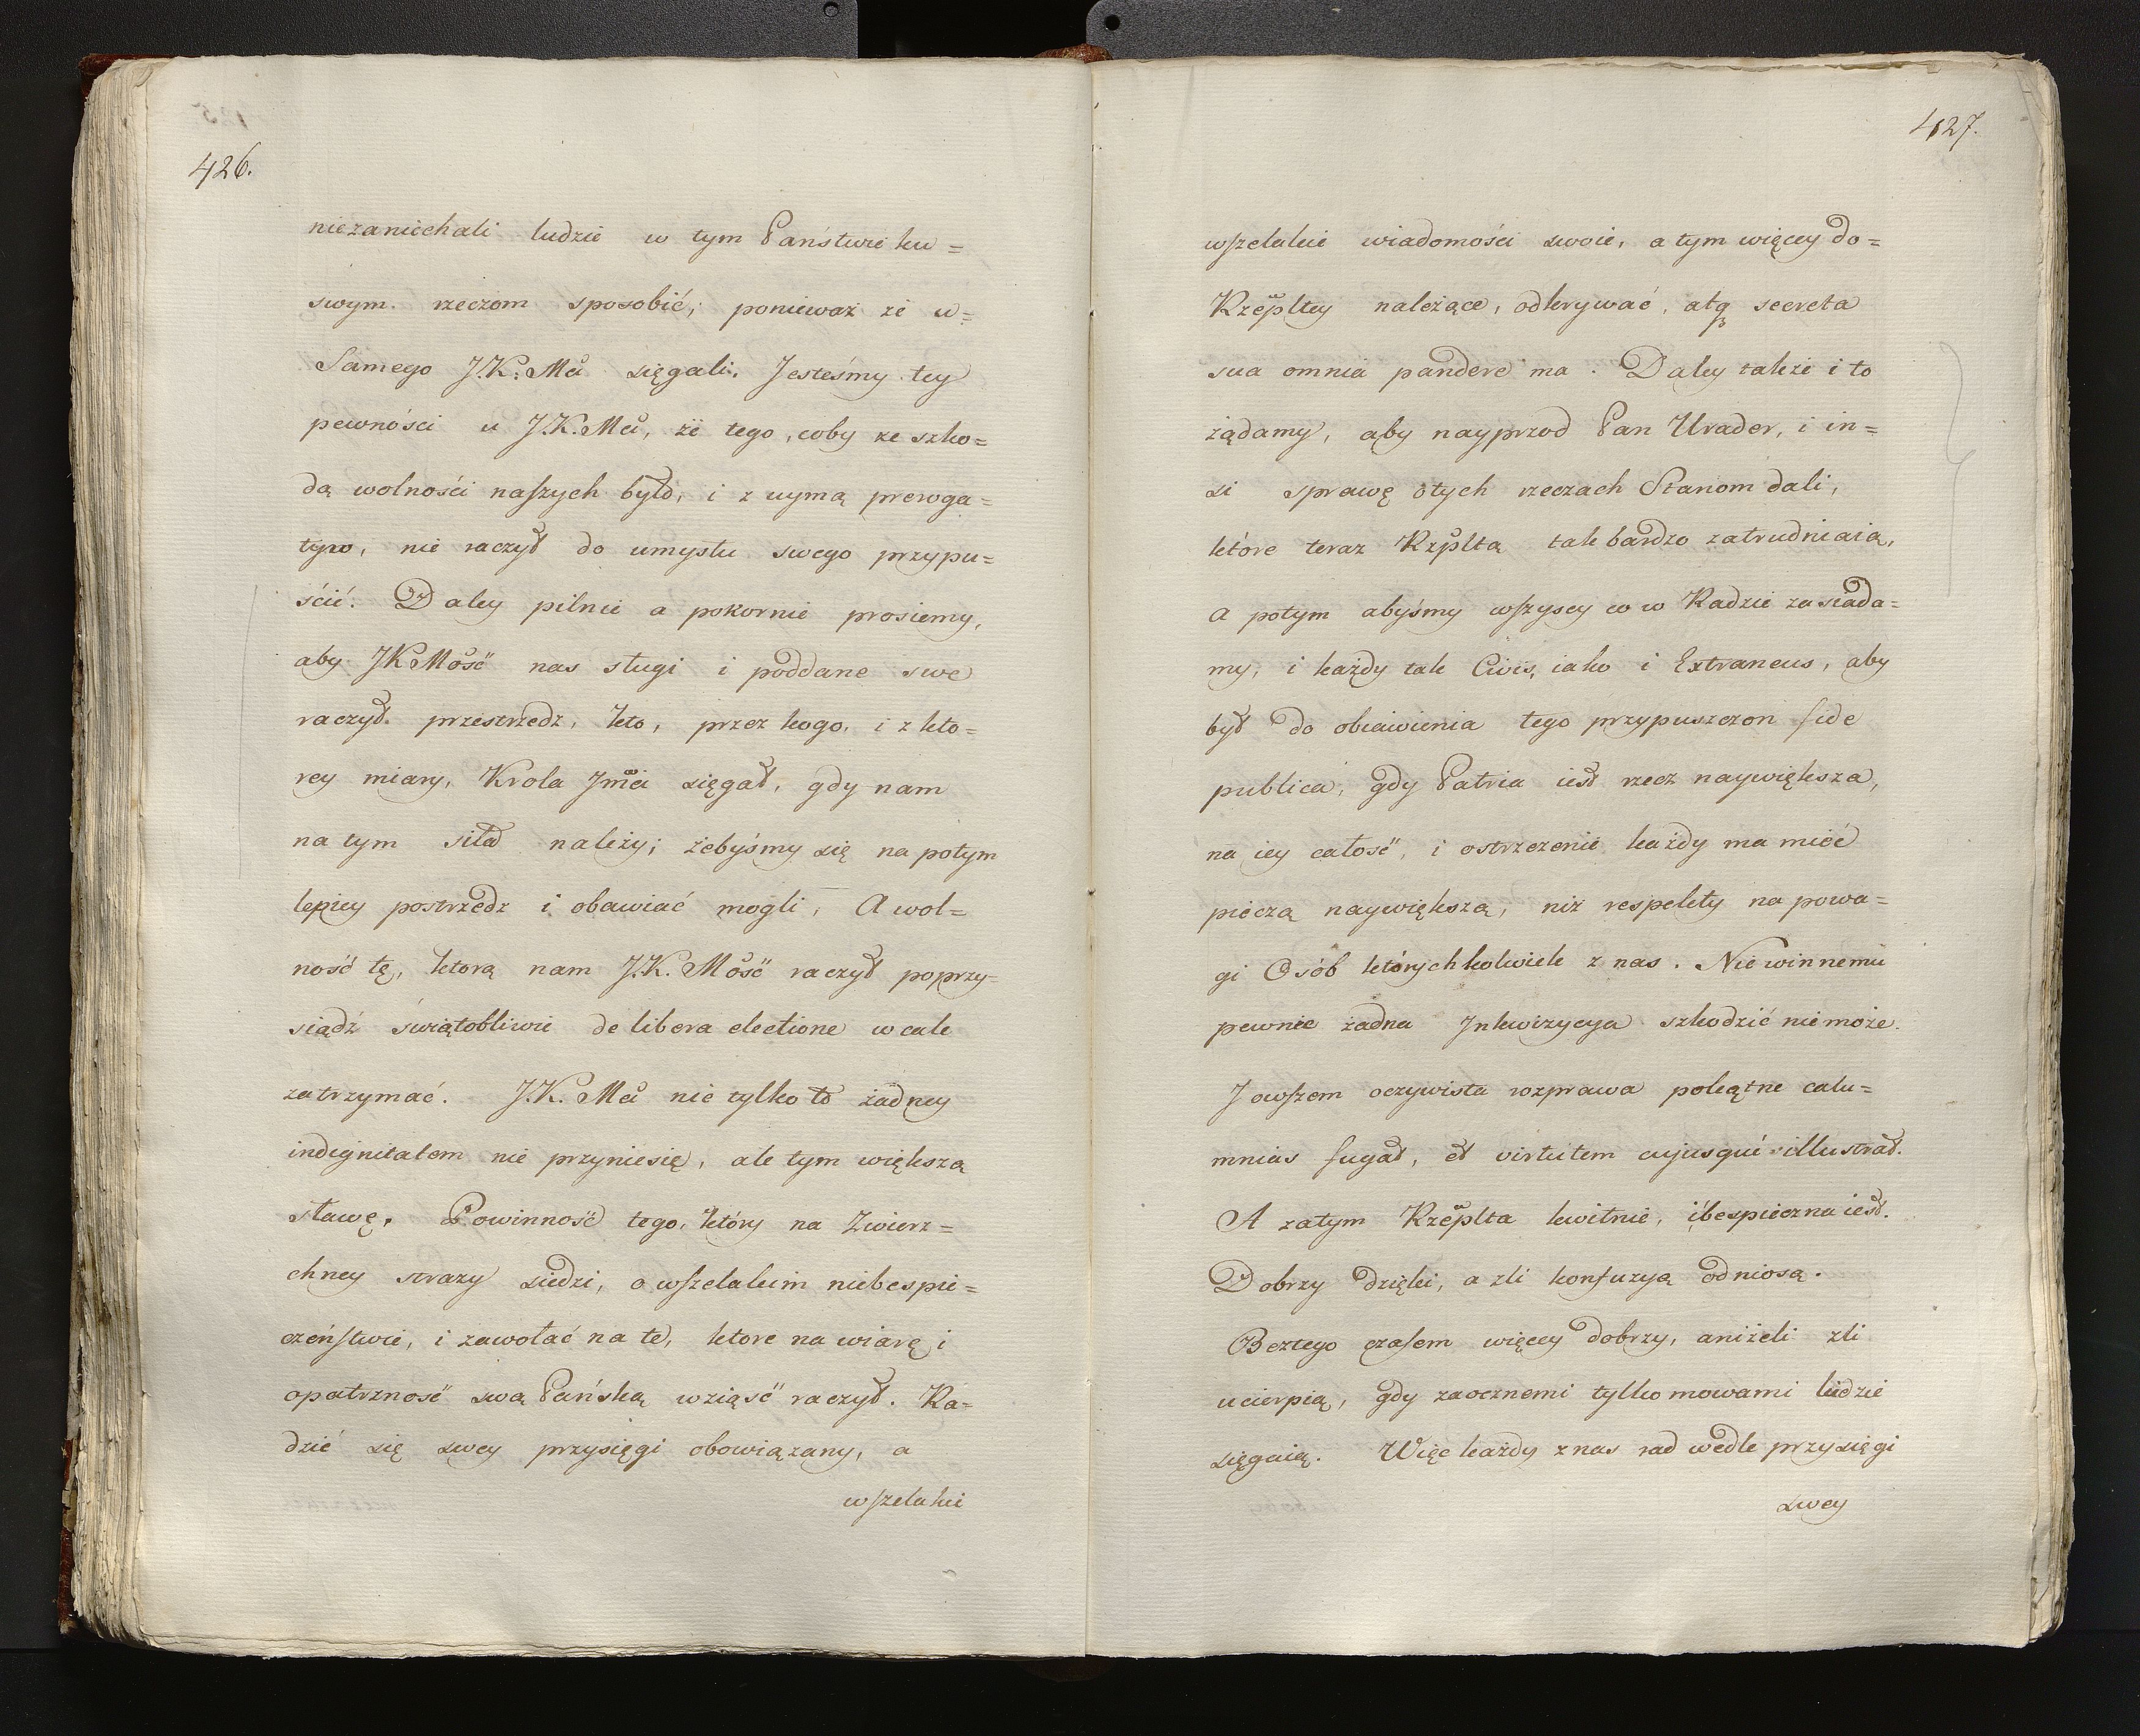 426.
niezaniechali ludzie w tym Państwie ku=
swym rzeczom sposobić, ponieważ że u=
Samego J.K. Mci sięgali. Jesteśmy tey
pewności u J.K. Mci, że tego, coby ze szko=
dą wolności naszych było, i z uymą preroga=
tyw, nie raczył do umysłu swego przypu=
ścić. Daley pilnie a pokornie prosiemy,
aby JK Mość nas sługi i poddane swe
raczył przestrzedz, kto, przez kogo, i z kto=
rey miary, Krola Jmci sięgał, gdy nam
na tym siła należy; żebyśmy się na potym
lepiey postrzedz i obawiać mogli, A wol=
ność tę, ktorą nam J.K. Mość raczył poprzy=
siądź świątobliwie de libera electione w cale
zatrzymać. J.K. Mci nie tylko to żadney
indignitatem nie przyniesię, ale tym większą
sławę. Powinność tego, który na Zwierz=
chney strazy siedzi, o wszelakim niebespie=
czeństwie, i zawołać na te, ktore na wiarę i
opatrzność swą Pańską wziąść raczył. Ra=
dzić się swey przysięgi obowiązany, a
wszelakie
427.
wszelakie wiadomości swoie, a tym więcey do=
Rzepltey należące, odkrywać, atq secreta
sua omnia pandere ma. Daley także i to
żądamy, aby nayprzod Pan Urader, i in=
si sprawę o tych rzeczach Stanom dali,
które teraz Rzpltą tak bardzo zatrudniaią,
a potym abyśmy wszyscy co w Radzie zasiada=
my, i każdy tak Civis, iako i Extraneus, aby
był do obiawienia tego przypuszczon fide
publica, gdy Patria iest rzecz naywiększa,
na iey całość, i ostrzezenie każdy ma mieć
pieczą naywiększą, niż respekty na powa=
gi Osób którychkolwiek z nas. Niewinnemu
pewnie żadna Inkwizycya szkodzić nie może.
Jowszem oczywista rozprawa pokątne calu=
mnias fugat, et virtutem cujusque illustrat.
A zatym Rzeplta kwitnie, i bespieczna iest.
Dobrzy dzięki, a zli konfuzyą odniosą.
Beztego czasem więcey dobrzy, aniżeli zli
ucierpią, gdy zaocznemi tylko mowami ludzie
sięgaią. Więc każdy z nas rad wedle przysięgi
swey